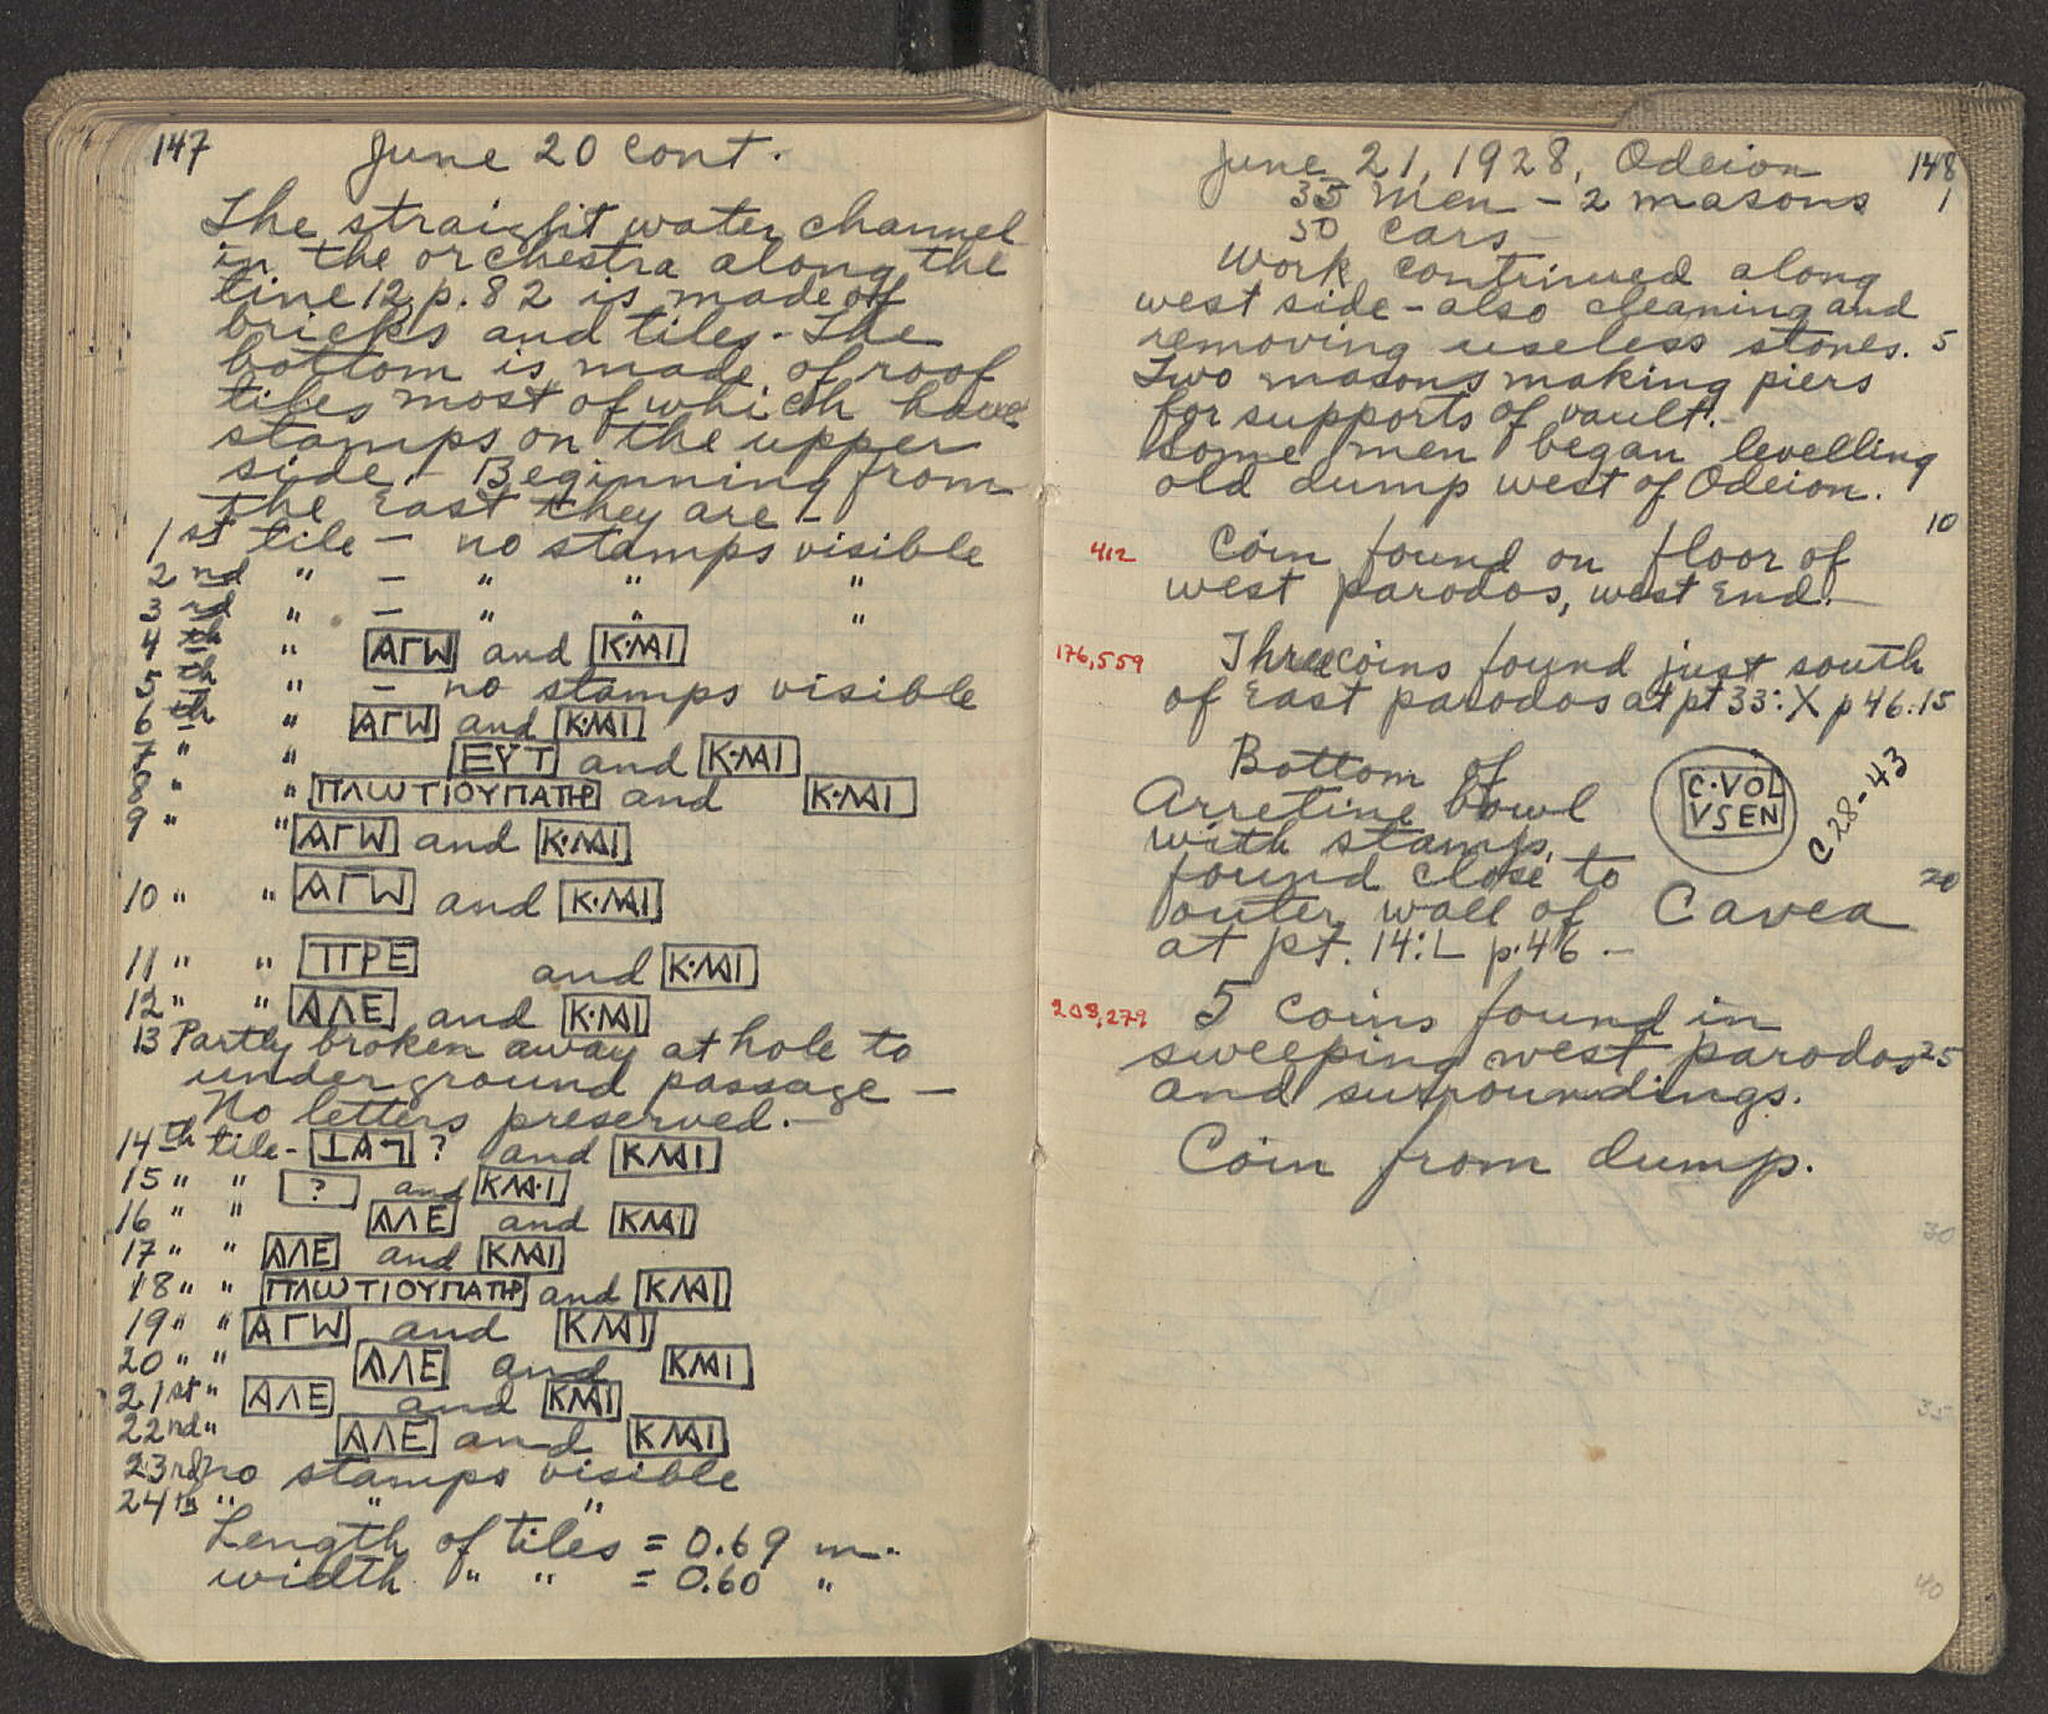 147 June 20 cont.
The straight water channel
in the orchestra along the
line 12, p. 82 is made of
bricks and tiles - The
bottom is made of roof
tiles most of which have
stamps on the upper
side - Beginning from
the East they are -
1st tile - no stamps visible
2nd " - " " "
3rd " - " " "
4th " ΑΓΩ and Κ·ΜΑΙ
5th " - no stamps visible
6th " ΑΓΩ and Κ·ΜΑΙ
7 " " ΕΥΤ and Κ·ΜΑΙ
8 " " ΠΛΩΤΙΟΥΠΑΤΗΡ and Κ·ΜΑΙ
9 " " ΑΓΩ and Κ·ΜΑΙ
10 " " ΑΓΩ and Κ·ΜΑΙ
11 " " ΠΡΕ and Κ·ΜΑΙ
12 " " ΑΛΕ and Κ·ΜΑΙ
13 Partly broken away at hole to
underground passage -
No letters preserved. -
14th tile - ? and ΚΜΑΙ
15 " " ? and ΚΜΑ·Ι
16 " " ΑΛΕ and ΚΜΑΙ
17 " " ΑΛΕ and ΚΜΑΙ
18 " " ΠΛΩΤΙΟΥΠΑΤΗΡ and ΚΜΑΙ
19 " " ΑΓΩ and ΚΜΑΙ
20 " " ΑΛΕ and ΚΜΑΙ
21st " ΑΛΕ and ΚΜΑΙ
22nd " ΑΛΕ and ΚΜΑΙ
23rd no stamps visible
24th " " "
Length of tiles = 0.69 m.
width " " = 0.60 "
June 21, 1928, Odeion 148
35 Men - 2 masons 1
50 cars -
Work continued along
west side - also cleaning and
removing useless stones. 5
Two masons making piers
for supports of vault. -
Some men began levelling
old dump west of Odeion.
10
412 Coin found on floor of
west parodos, west End. -
176,559 Three coins found just south
of East parodos at pt 33:X p 46. 15
Bottom of
Arretine bowl
with stamp,
found close to 20
outer wall of Cavea
at pt. 14:L p. 46 -
C·VOL
VSEN
C 28-43
203,279 5 coins found in
sweeping west parodos 25
and surroundings.
Coin from dump.
30
35
40